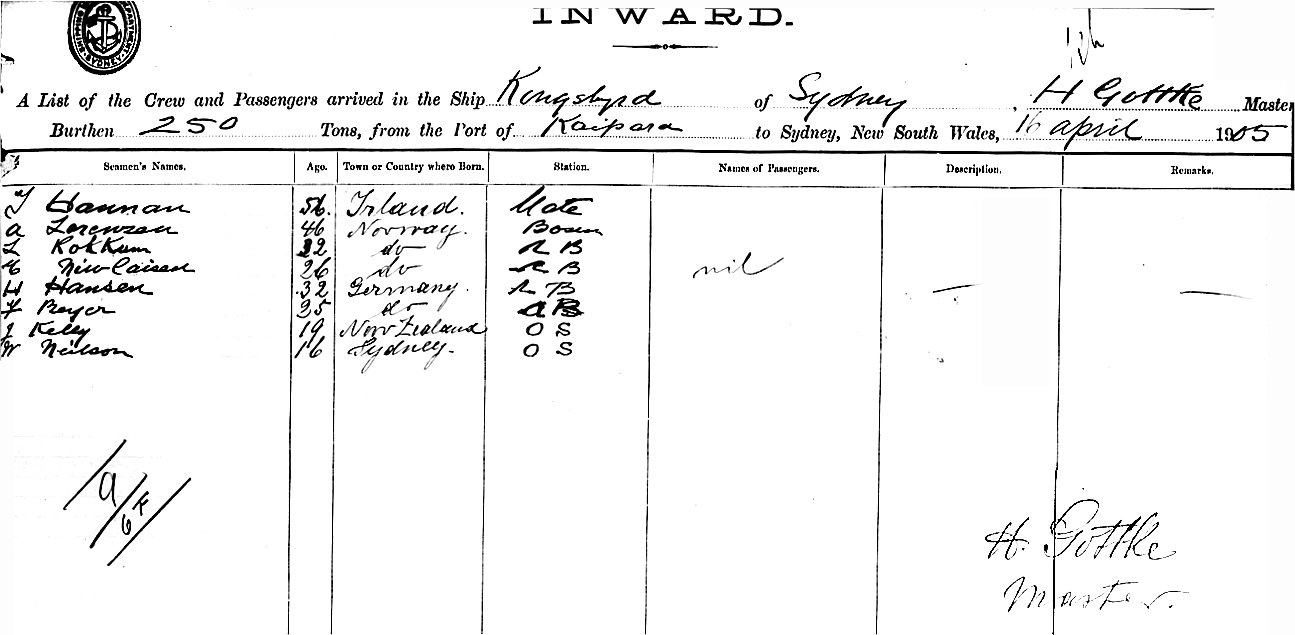 INWARD.
SHIPPING DEPARTMENT SYDNEY
A List of the Crew and Passengers arrived in the Ship Kongsbyrd of Sydney, H Gottke Master
Burthen 250 Tons, from the Port of Kaipara to Sydney, New South Wales, 16 april 1905
Seamen's Names. Age. Town or Country where Born. Station. Names of Passengers. Description. Remarks.
T Hannan 56. Irland. Mate
A Lorenzen 46 Norway. Bosun
L Rokkum 22 do A B
26 do A B nil
H Hansen 32 Germany. A B
F Beyer 25 do A B
J Kelly 19 New Zealand O S
W Neilson 16 Sydney. O S
H. Gottke
Master.